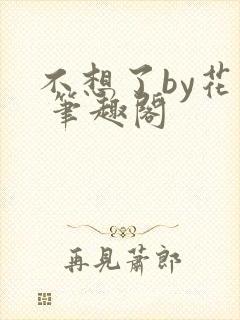 不想了by花
筆趣閣
再見蕭郎